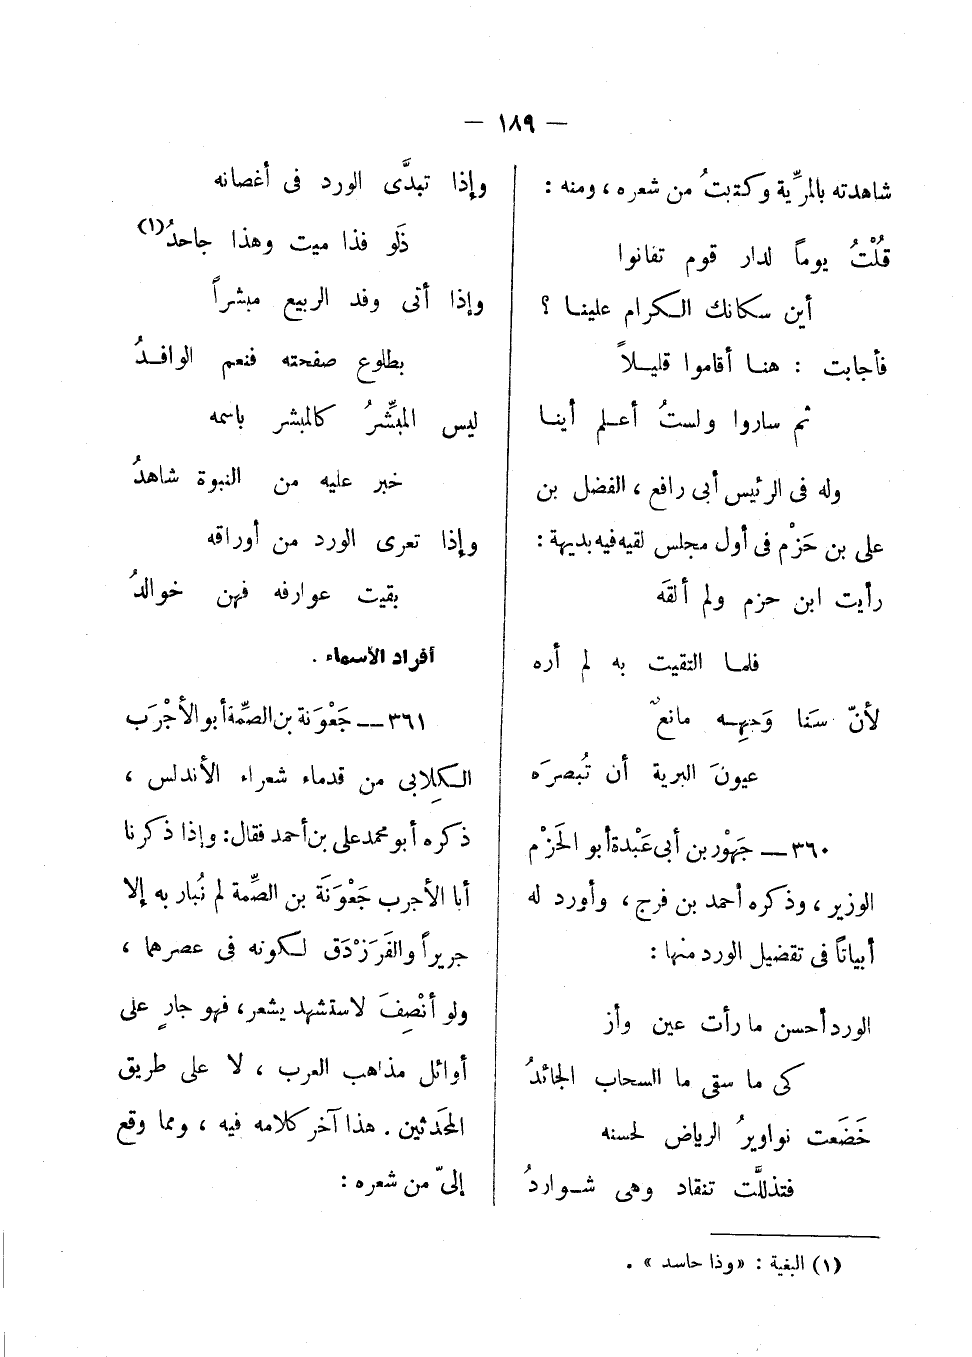 — ١٨٩ —
شاهدته بالمرِّية وكتبتُ من شعره ، ومنه :
قُلْتُ يوماً لدار قوم تفانوا
أين سكانك الكرام علينا ؟
فأجابت : هنا أقاموا قليلاً
ثم ساروا ولستُ أعلم أينا
وله فى الرئيس أبى رافع ، الفضل بن
على بن حَزْم فى أول مجلس لقيه فيه بديهة :
رأيت ابن حزم ولم ألقَه
فلما التقيت به لم أره
لأنّ سَنا وَجهِه مانعٌ
عيونَ البرية أن تُبصرَه
٣٦٠ — جَهْور بن أبى عَبْدة أبو الحَزْم
الوزير ، وذكره أحمد بن فرج ، وأورد له
أبياتاً فى تفضيل الورد منها :
الورد أحسن ما رأت عين وأز
كى ما سقى ما السحاب الجائدُ
خَضَعت نواويرُ الرياض لحسنه
فتذللَّت تنقاد وهى شواردُ
وإذا تبدَّى الورد فى أغصانه
ذَلَو فذا ميت وهذا جاحدُ(١)
وإذا أتى وفد الربيع مبشراً
بطلوع صفحته فنعم الوافدُ
ليس المبَشِّرُ كالمبشر باسمه
خبر عليه من النبوة شاهدُ
وإذا تعرى الورد من أوراقه
بقيت عوارفه فهن خوالدُ
أفراد الأسماء .
٣٦١ — جَعْوَنة بن الصِّمة أبو الأَجْرَب
الكلابى من قدماء شعراء الأندلس ،
ذكره أبو محمد على بن أحمد فقال : وإذا ذكرنا
أبا الأجرب جَعْوَنَة بن الصِّمة لم نُبار به إلا
جريراً والفَرَزْدَق لكونه فى عصرهما ،
ولو أنْصِفَ لاستشهد بشعر ، فهو جارٍ على
أوائل مذاهب العرب ، لا على طريق
المحَدثين . هذا آخر كلامه فيه ، ومما وقع
إلىّ من شعره :
(١) البغية : «وذا حاسد » .